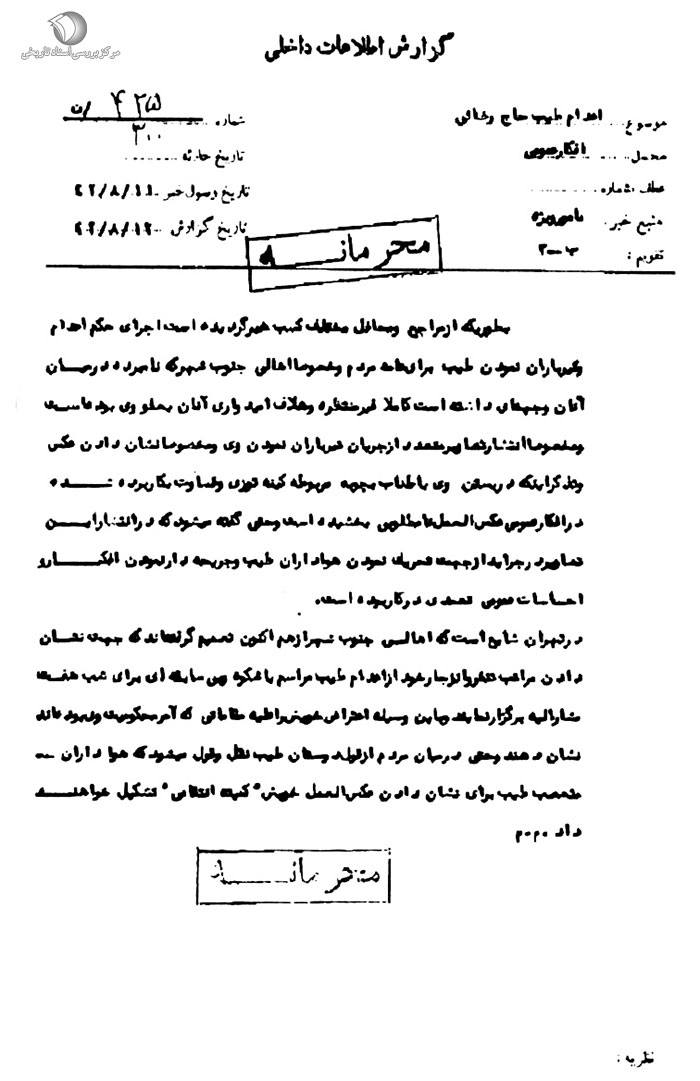 مرکز بررسی اسناد تاریخی
گزارش اطلاعات داخلی
موضوع اعدام طیب حاج رضائی
شماره
۳۰۰
محل افکار عمومی
تاریخ حادثه
عطف شماره
تاریخ وصول خبر ۴۲/۸/۱۱
منبع خبر
تاریخ گزارش ۴۲/۸/۱۲
تقویم : ب-۲
محرمانه
بطوریکه از مراجع و محافل مختلف کسب خبر گردیده است اجرای حکم اعدام
و تیرباران نمودن طیب برای عامه مردم و خصوصا اهالی جنوب شهر که نامبرده در میان
آنان وجهه‌ای داشته است کاملا غیر منتظره و خلاف امیدواری آنان بعفو وی بوده است
و مخصوصا انتشار تصاویر متعدد از جریان تیرباران نمودن وی و مخصوصا نشان دادن عکس
و تذکر اینکه در بستن وی با طناب بچوبه مربوطه کینه توزی و قساوت بکار برده شده
در افکار عمومی عکس‌العمل نامطلوبی بخشیده است و حتی گفته میشود که در انتشار این
تصاویر در جراید از جهت تحریک نمودن هواداران طیب و جریحه دار نمودن افکار و
احساسات عمومی تعمدی در کار بوده است.
در تهران شایع است که اهالی جنوب شهر از هم اکنون تصمیم گرفته‌اند که جهت نشان
دادن مراتب تنفر و انزجار خود از اعدام طیب مراسم با شکوه و بی سابقه ای برای شب هفت
مشارالیه برگزار نمایند و باین وسیله اعتراض خویش را علیه مقاماتی که آمر محکومیت وی بوده‌اند
نشان دهند و حتی در میان مردم از قول دوستان طیب نقل و قول میشود که هواداران
متعصب طیب برای نشان دادن عکس‌العمل خویش "کمیته انتقامی" تشکیل خواهند
داد .م.م
محرمانه
نظریه :